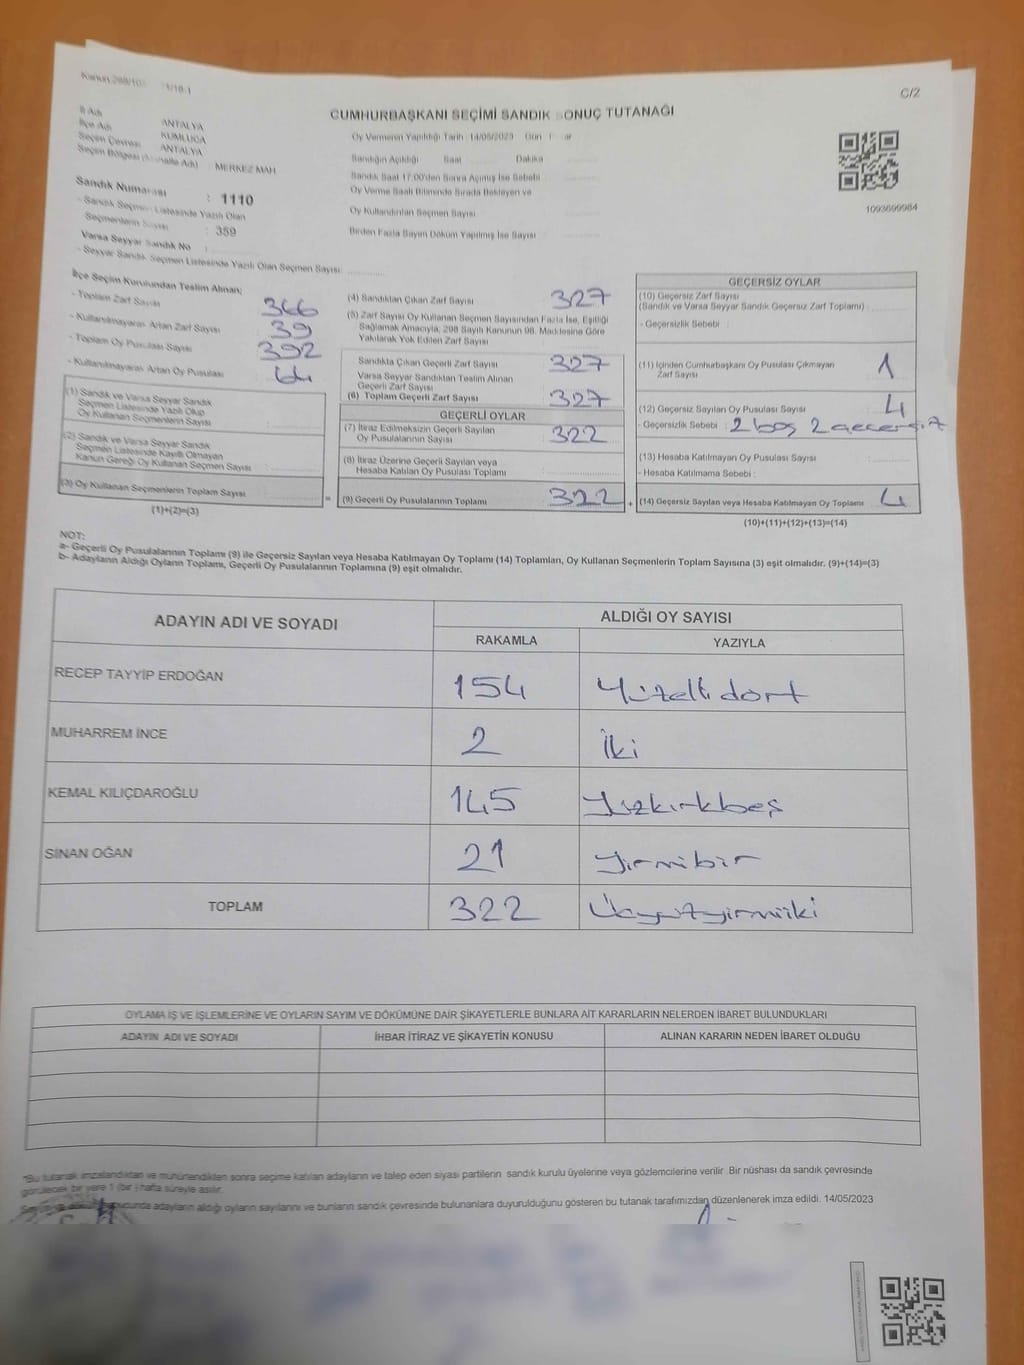 Kanun 298/10
C/2
CUMHURBAŞKANI SEÇİMİ SANDIK SONUÇ TUTANAĞI
İl Adı ANTALYA
İlçe Adı KUMLUCA
Seçim Çevresi ANTALYA
Seçim Bölgesi (Mahalle Adı) : MERKEZ MAH
Sandık Numarası : 1110
- Sandık Seçmen Listesinde Yazılı Olan
Seçmenlerin Sayısı : 359
Varsa Seyyar Sandık No :
- Seyyar Sandık Seçmen Listesinde Yazılı Olan Seçmen Sayısı
Oy Vermenin Yapıldığı Tarih 14/05/2023 Gün
Sandığın Açıldığı Saat Dakika
Sandık Saat 17.00'den Sonra Açılmış İse Sebebi
Oy Verme Saati Bitiminde Sırada Bekleyen ve
Oy Kullandırılan Seçmen Sayısı
Birden Fazla Sayım Döküm Yapılmış İse Sayısı
1093699984
İlçe Seçim Kurulundan Teslim Alınan;
- Toplam Zarf Sayısı 366
- Kullanılmayarak Artan Zarf Sayısı 39
- Toplam Oy Pusulası Sayısı 392
- Kullanılmayarak Artan Oy Pusulası 64
(1) Sandık ve Varsa Seyyar Sandık
Seçmen Listesinde Yazılı Olup
Oy Kullanan Seçmenlerin Sayısı :
(2) Sandık ve Varsa Seyyar Sandık
Seçmen Listesinde Kayıtlı Olmayan
Kanun Gereği Oy Kullanan Seçmen Sayısı :
(3) Oy Kullanan Seçmenlerin Toplam Sayısı =
(1)+(2)=(3)
(4) Sandıktan Çıkan Zarf Sayısı 327
(5) Zarf Sayısı Oy Kullanan Seçmen Sayısından Fazla İse, Eşitliği
Sağlamak Amacıyla, 298 Sayılı Kanunun 98. Maddesine Göre
Yakılarak Yok Edilen Zarf Sayısı
Sandıkta Çıkan Geçerli Zarf Sayısı 327
Varsa Seyyar Sandıktan Teslim Alınan
Geçerli Zarf Sayısı
(6) Toplam Geçerli Zarf Sayısı 327
GEÇERLİ OYLAR
(7) İtiraz Edilmeksizin Geçerli Sayılan
Oy Pusulalarının Sayısı : 322
(8) İtiraz Üzerine Geçerli Sayılan veya
Hesaba Katılan Oy Pusulası Toplamı :
(9) Geçerli Oy Pusulalarının Toplamı 322 +
GEÇERSİZ OYLAR
(10) Geçersiz Zarf Sayısı
(Sandık ve Varsa Seyyar Sandık Geçersiz Zarf Toplamı) :
- Geçersizlik Sebebi :
(11) İçinden Cumhurbaşkanı Oy Pusulası Çıkmayan
Zarf Sayısı 1
(12) Geçersiz Sayılan Oy Pusulası Sayısı 4
- Geçersizlik Sebebi : 2 boş 2 geçersiz
(13) Hesaba Katılmayan Oy Pusulası Sayısı :
- Hesaba Katılmama Sebebi :
(14) Geçersiz Sayılan veya Hesaba Katılmayan Oy Toplamı 4
(10)+(11)+(12)+(13)=(14)
NOT:
a- Geçerli Oy Pusulalarının Toplamı (9) ile Geçersiz Sayılan veya Hesaba Katılmayan Oy Toplamı (14) Toplamları, Oy Kullanan Seçmenlerin Toplam Sayısına (3) eşit olmalıdır. (9)+(14)=(3)
b- Adayların Aldığı Oyların Toplamı, Geçerli Oy Pusulalarının Toplamına (9) eşit olmalıdır.
ADAYIN ADI VE SOYADI ALDIĞI OY SAYISI
RAKAMLA YAZIYLA
RECEP TAYYİP ERDOĞAN 154 Yüzelli dört
MUHARREM İNCE 2 İki
KEMAL KILIÇDAROĞLU 145 Yüzkırkbeş
SİNAN OĞAN 21 Yirmibir
TOPLAM 322 Üçyüzyirmiiki
OYLAMA İŞ VE İŞLEMLERİNE VE OYLARIN SAYIM VE DÖKÜMÜNE DAİR ŞİKAYETLERLE BUNLARA AİT KARARLARIN NELERDEN İBARET BULUNDUKLARI
ADAYIN ADI VE SOYADI İHBAR İTİRAZ VE ŞİKAYETİN KONUSU ALINAN KARARIN NEDEN İBARET OLDUĞU
*Bu tutanak imzalandıktan ve mühürlendikten sonra seçime katılan adayların ve talep eden siyasi partilerin sandık kurulu üyelerine veya gözlemcilerine verilir. Bir nüshası da sandık çevresinde
görülecek bir yere 1 (bir ) hafta süreyle asılır.
adayların aldığı oyların sayılarını ve bunların sandık çevresinde bulunanlara duyurulduğunu gösteren bu tutanak tarafımızdan düzenlenerek imza edildi. 14/05/2023